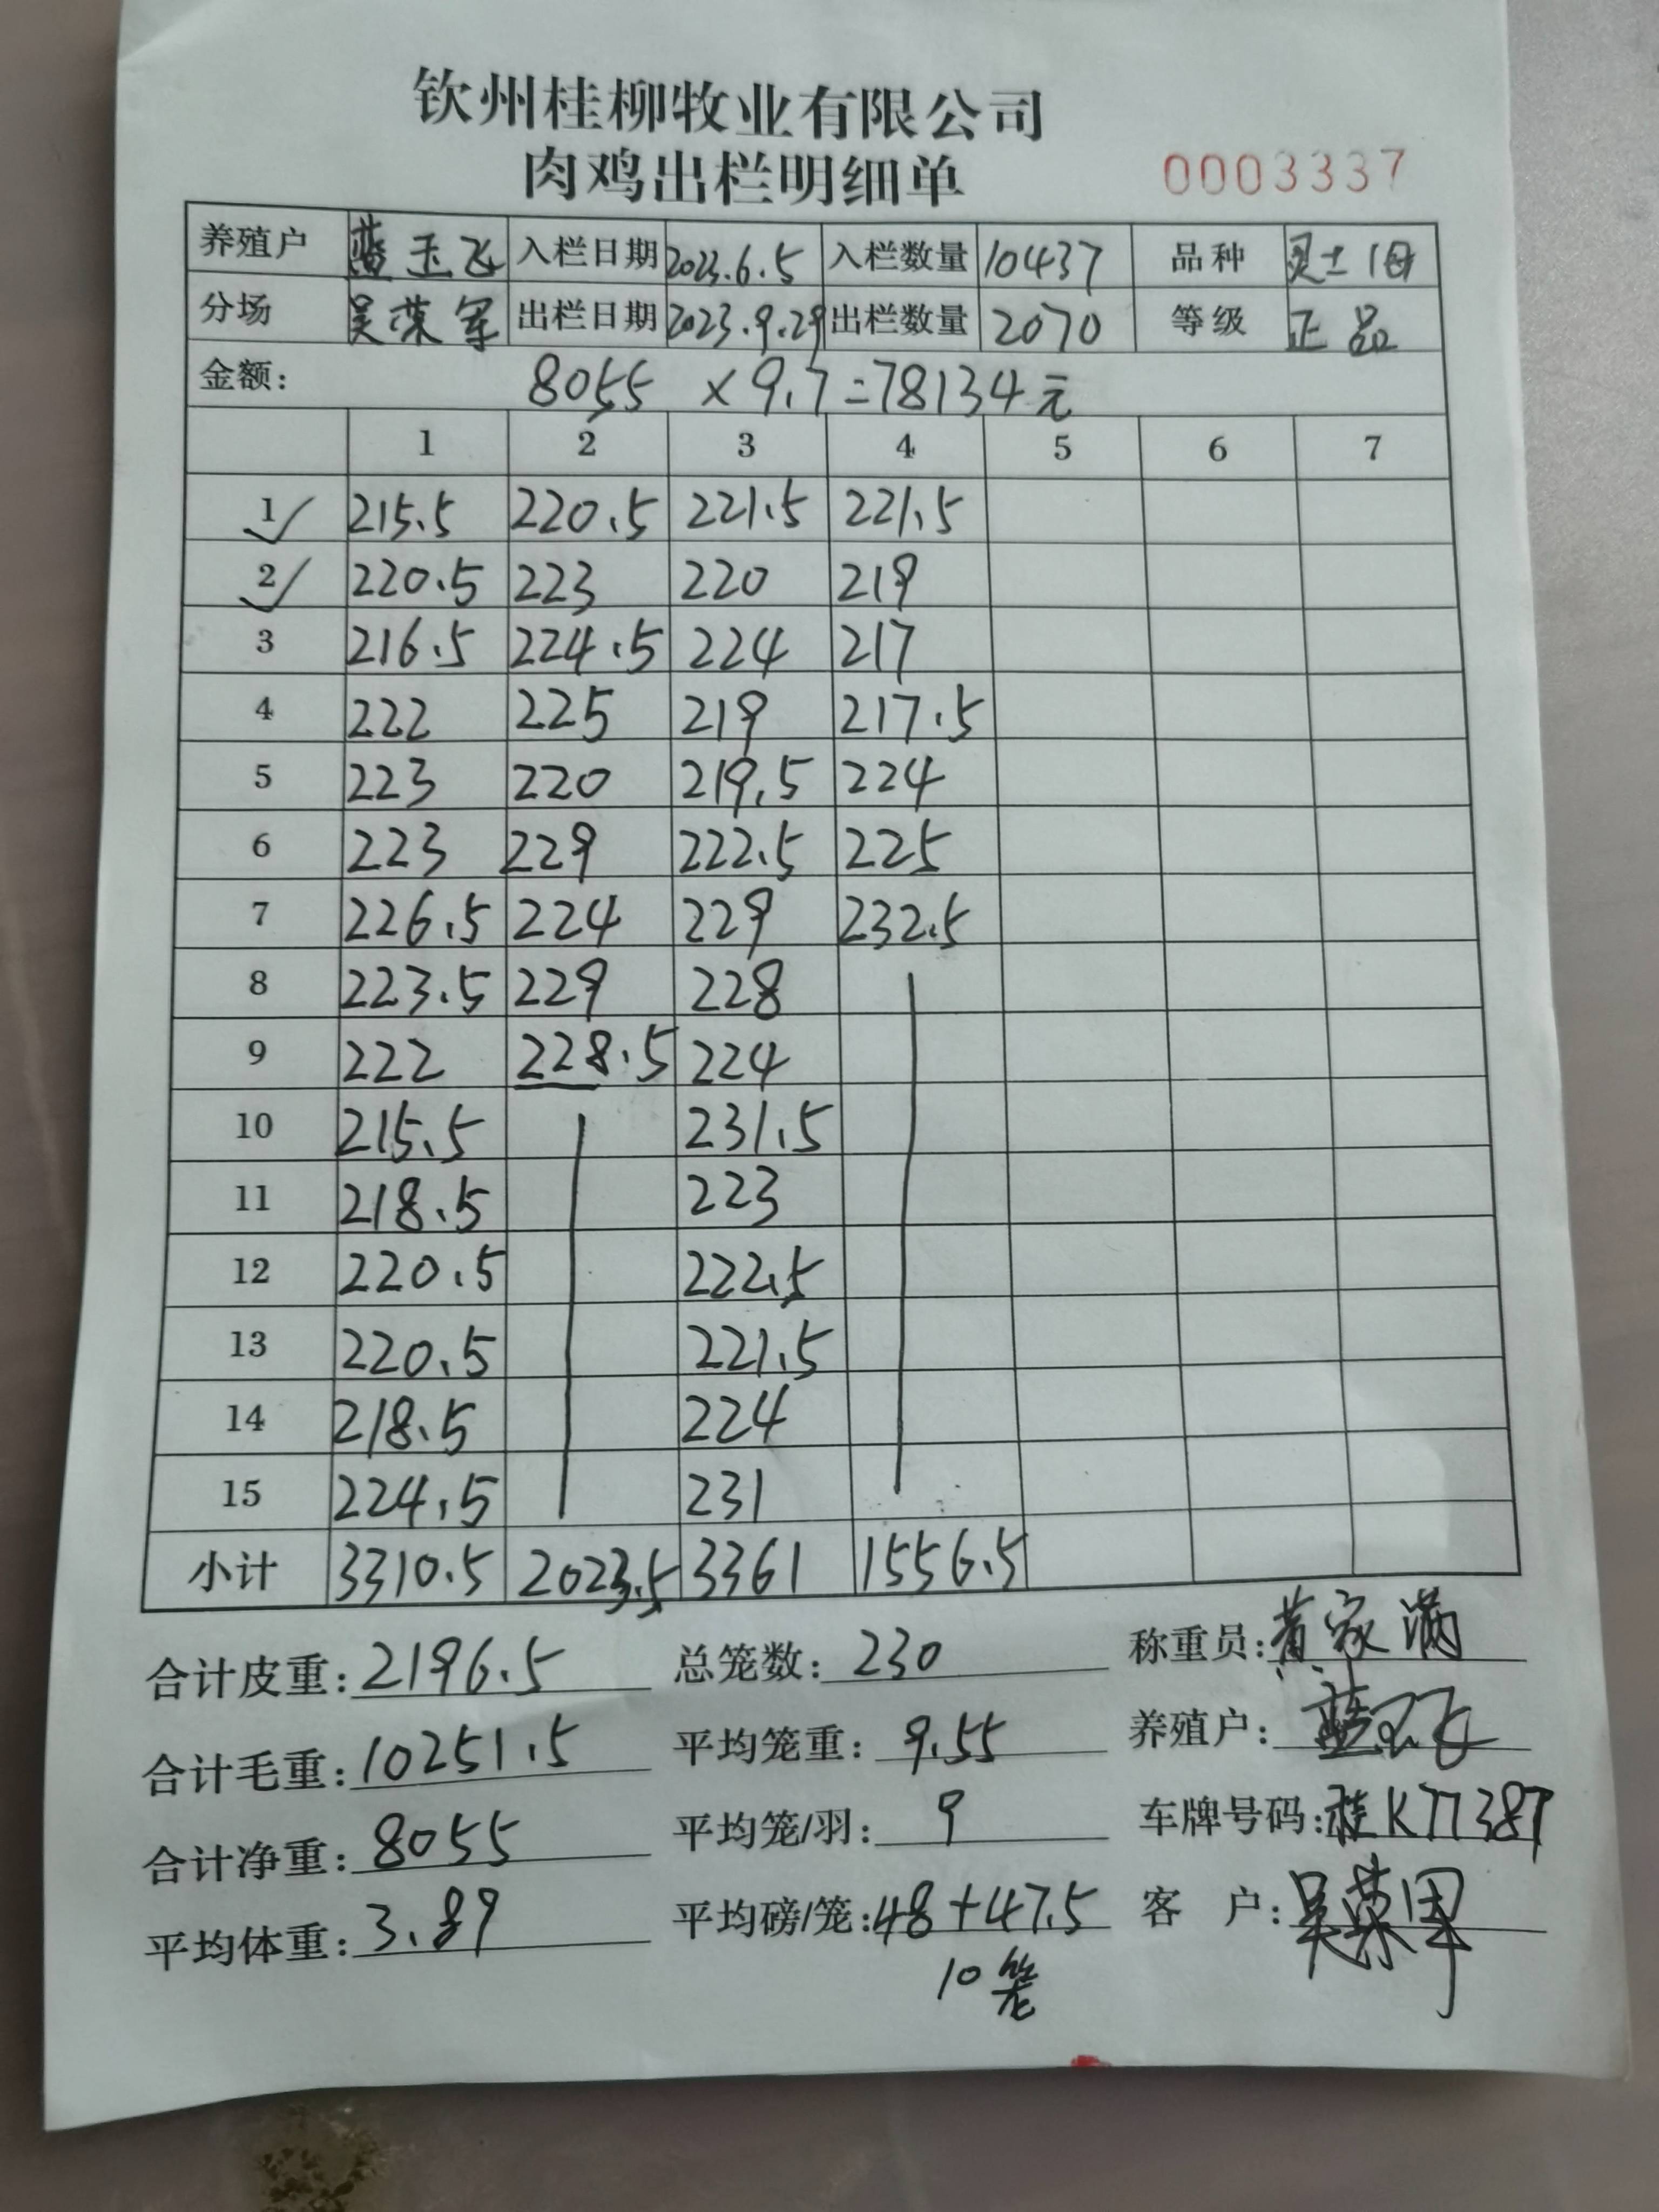 钦州桂柳牧业有限公司
肉鸡出栏明细单 0003337
养殖户 蓝玉飞 入栏日期 2023.6.5 入栏数量 10437 品种 灵土1母
分场 吴荣军 出栏日期 2023.9.29 出栏数量 2070 等级 正品
金额: 8055 ×9.7=78134元
1 2 3 4 5 6 7
1 215.5 220.5 221.5 221.5
2 220.5 223 220 219
3 216.5 224.5 224 217
4 222 225 219 217.5
5 223 220 219.5 224
6 223 229 222.5 225
7 226.5 224 229 232.5
8 223.5 229 228
9 222 228.5 224
10 215.5 231.5
11 218.5 223
12 220.5 222.5
13 220.5 221.5
14 218.5 224
15 224.5 231
小计 3310.5 2023.5 3361 1556.5
合计皮重: 2196.5 总笼数: 230 称重员: 黄家满
合计毛重: 10251.5 平均笼重: 9.55 养殖户: 蓝玉飞
合计净重: 8055 平均笼/羽: 9 车牌号码: 桂K77387
平均体重: 3.89 平均磅/笼: 48+47.5 客 户: 吴荣军
10笼